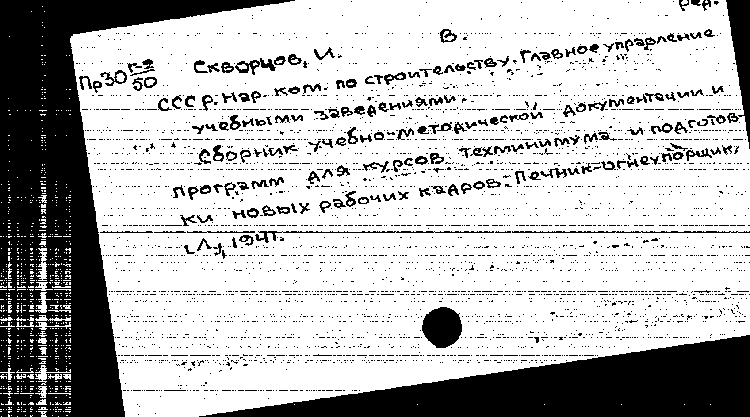 ред.
Пр30 г-9/50 Скворцов, И. В.
СССР. Нар. ком. по строительству. Главное управление
учебными заведениями.
Сборник учебно-методической документации и
программ для курсов техминимума и подготов-
ки новых рабочих кадров: Печник-огнеупорщик.
Л., 1941.